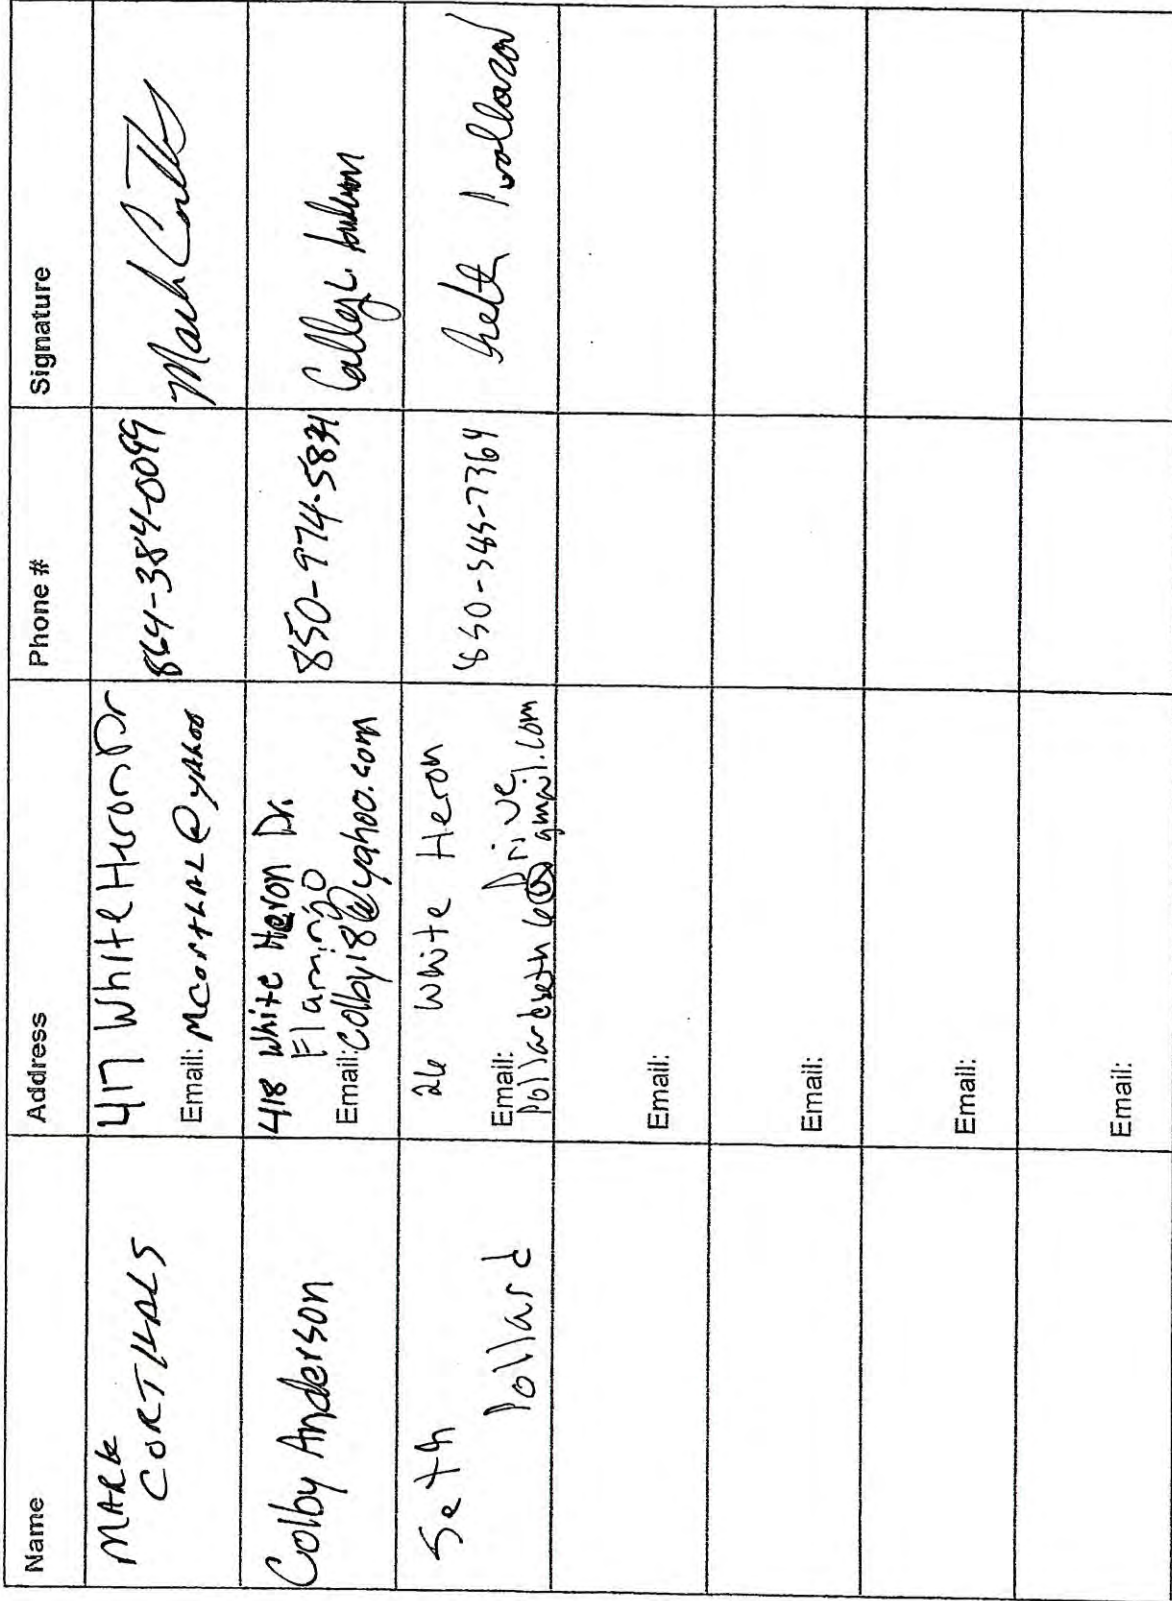 Name Address Phone # Signature
MARK
CORTHALS
417 White Heron Dr
Email: MCORTHAL@yahoo
864-384-0099
Mark
Colby Anderson
418 White Heron Dr.
Flamingo
Email: Colby18@yahoo.com
850-974-5831
Colby L.
Seth
Pollard
26 White Heron
Drive
Email:
Pollardseth6@gmail.com
850-585-7364
Seth Pollard
Email:
Email:
Email:
Email: